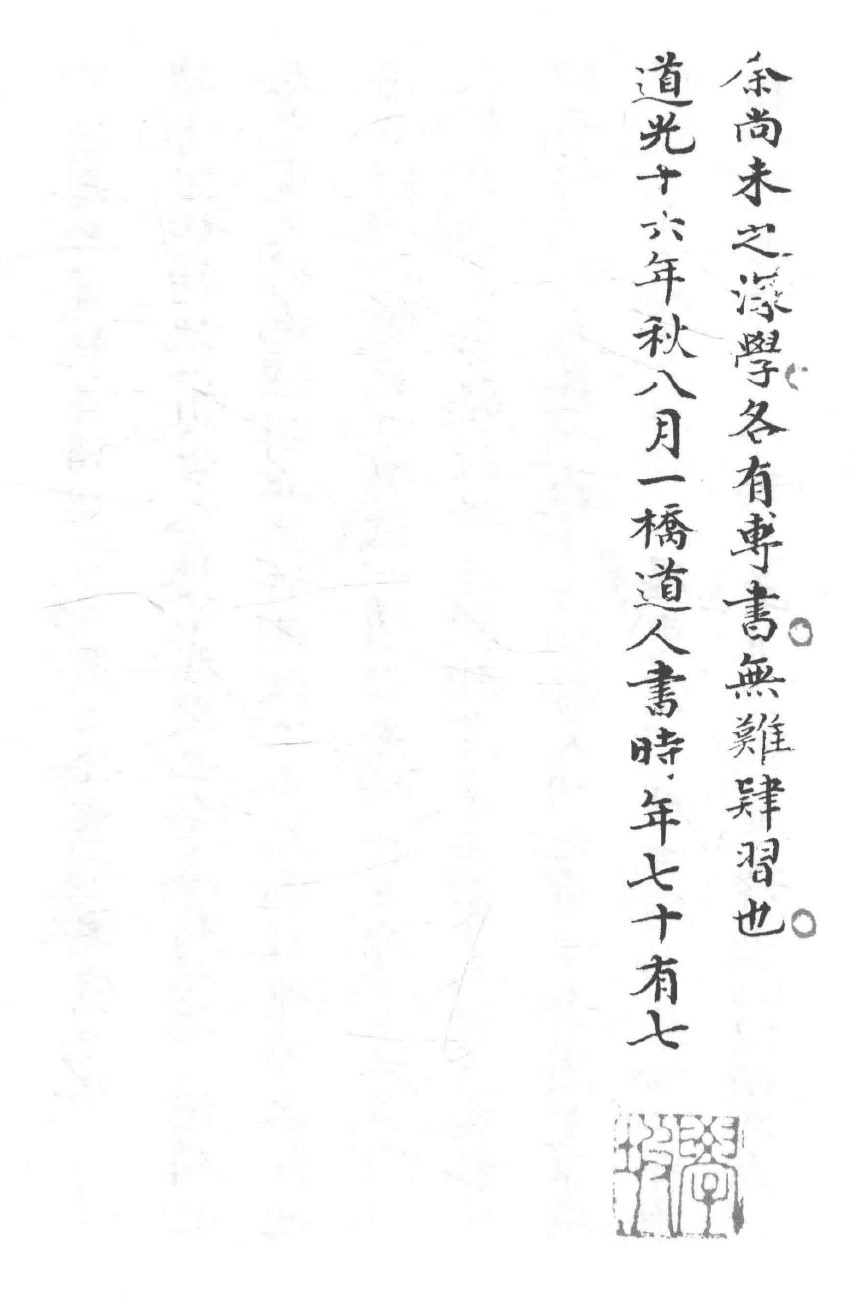 余尚未之深學各有專書無難肄習也
道光十六年秋八月一橋道人書時年七十有七
學